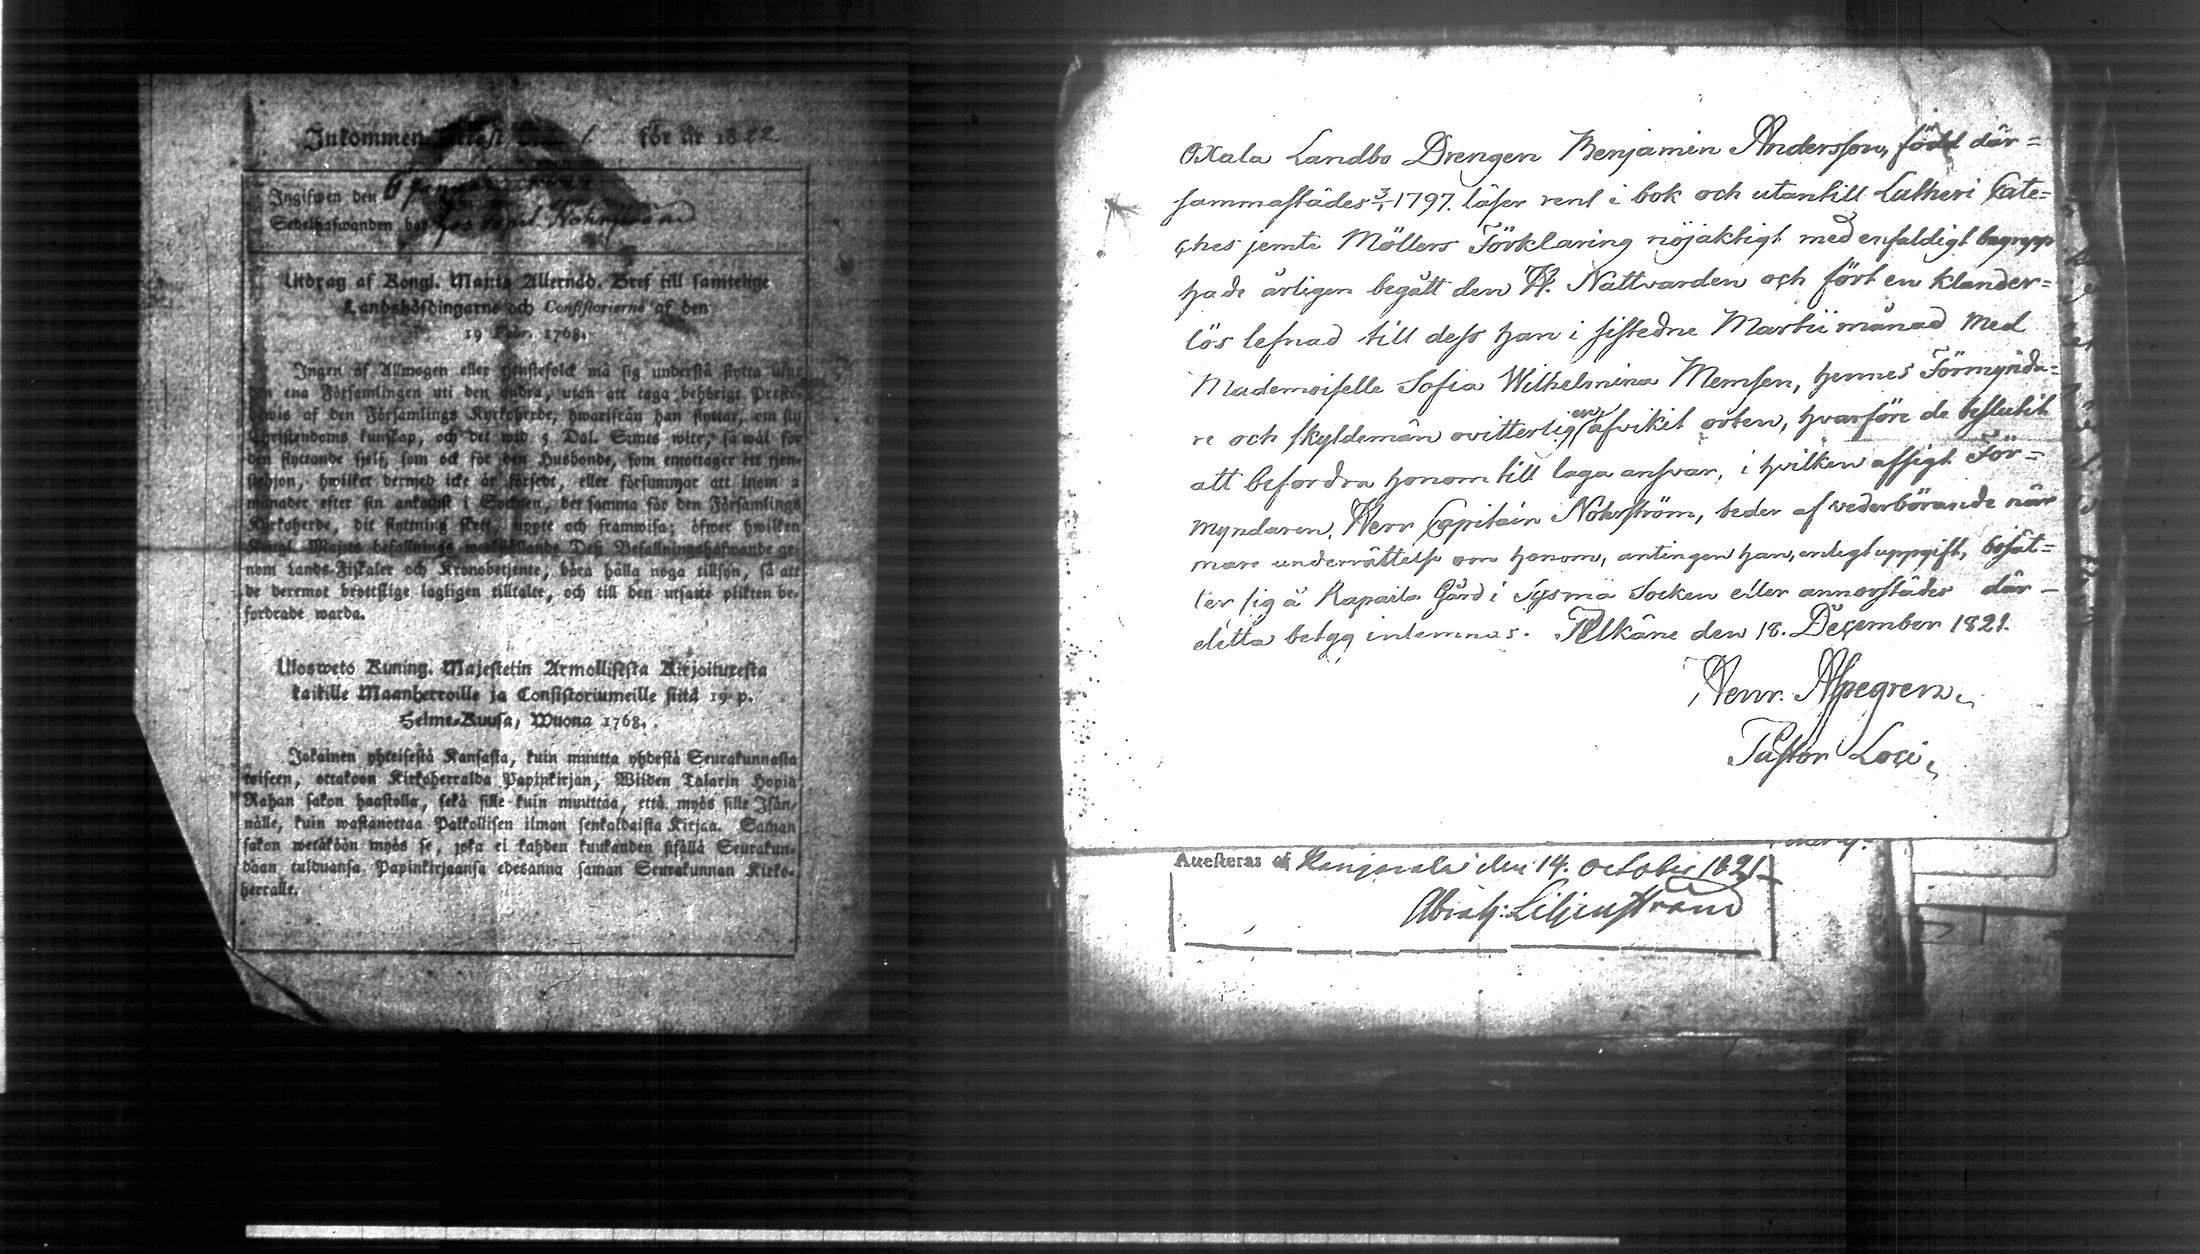 Inkommen för år 1822.
Ingifwen den 6 Januari 1822
Sedelhafwanden bor hos Capit. Nohrström
Utdrag af Kongl. Maj:ts Allernåd. Bref till samtelige
Landshöfdingarne och Consistorierne af den
19 Febr. 1768.
Ingen af Allmogen eller tjenstefolck må sig understå flytta utur
den ena Församlingen uti den andra, utan att taga behörigt Preste-
bewis af den Församlings Kyrkoherde, hwarifrån han flyttar, om sin
Christendoms kunskap, och det wid 5 Dal. Smts wite, så wäl för
den flyttande sjelf, som ock för den Husbonde, som emottager ett tjen-
stehjon, hwilket dermed icke är försedt, eller försummar att inom 2
månader efter sin ankomst i Socknen, det samma för den Församlings
Kyrkoherde, dit flyttning skett, uppte och framwisa; öfwer hwilken
Kongl. Maj:ts befallnings werkställande Dess Befallningshafwande ge-
nom Lands-Fiskaler och Kronobetjente, böra hålla noga tillsyn, så att
de deremot brottslige lagligen tilltalte, och till den utsatte plikten be-
fordrade warda.
Ulosweto Kuning. Majestetin Armollisesta Kirjoituresta
kaikille Maanherroille ja Consistoriumeille siitä 19 p.
Helme-Kuusa, Wuona 1768.
Jokainen yhteisestä Kansasta, kuin muutta yhdestä Seurakunnasta
toiseen, ottakoon Kirkoherralda Papinkirjan, Wiiden Talarin Hopia
Rahan sakon haastolla, sekä sille kuin muuttaa, että myös sille Isän-
nälle, kuin wastanottaa Palkollisen ilman senkaldaista Kirjaa. Saman
sakon wetäköön myös se, joka ei kahden kuukauden sisällä Seurakun-
daan tulduansa Papinkirjaansa edesanna saman Seurakunnan Kirko-
herralle.
Oxala Landbo Drengen Benjamin Andersson, född där=
sammastädes 3/1 1797. läser rent i bok och utantill Lutheri Cate=
ches jemte Möllers Förklaring nöjaktigt med enfaldigt begrepp
hade årligen begått den H. Nattvarden och fört en klander=
lös lefnad till dess han i sistedne Martii månad med
Mademoiselle Sofia Wilhelmina Memsen, hennes Förmynda=
re och skyldemän ovitterligen afvikit orten, hvarföre de beslutit
att befordra honom till laga ansvar, i hvilken afsigt För=
myndaren, Herr Capitain Nohrström, beder af vederbörande när
mare underrättelse om honom, antingen han, enligt uppgift, bosät=
ter sig å Rapaila Gård i Sysmä Socken eller annorstädes där —
detta betyg intemnas. Pelkäne den 18. December 1821.
Henr. Aspegren.
Pastor Loci.
Attesteras af Kangasala den 14. October 1821
Abrah: Liljenstrand